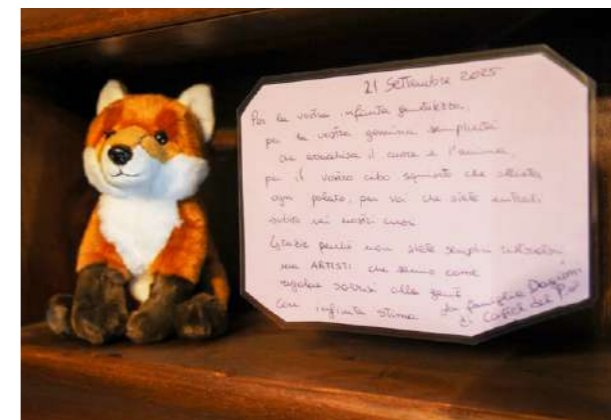 21 Settembre 2025
Per la vostra infinita gentilezza,
per la vostra genuina semplicità
che arricchisce il cuore e l'anima,
per il vostro cibo squisito che delizia
ogni palato, per voi che siete entrati
subito nei nostri cuori
Grazie perché non siete semplici ristoratori
ma ARTISTI che sanno come
regalare sorrisi alla gente
con infinita stima la famiglia
di Castel del